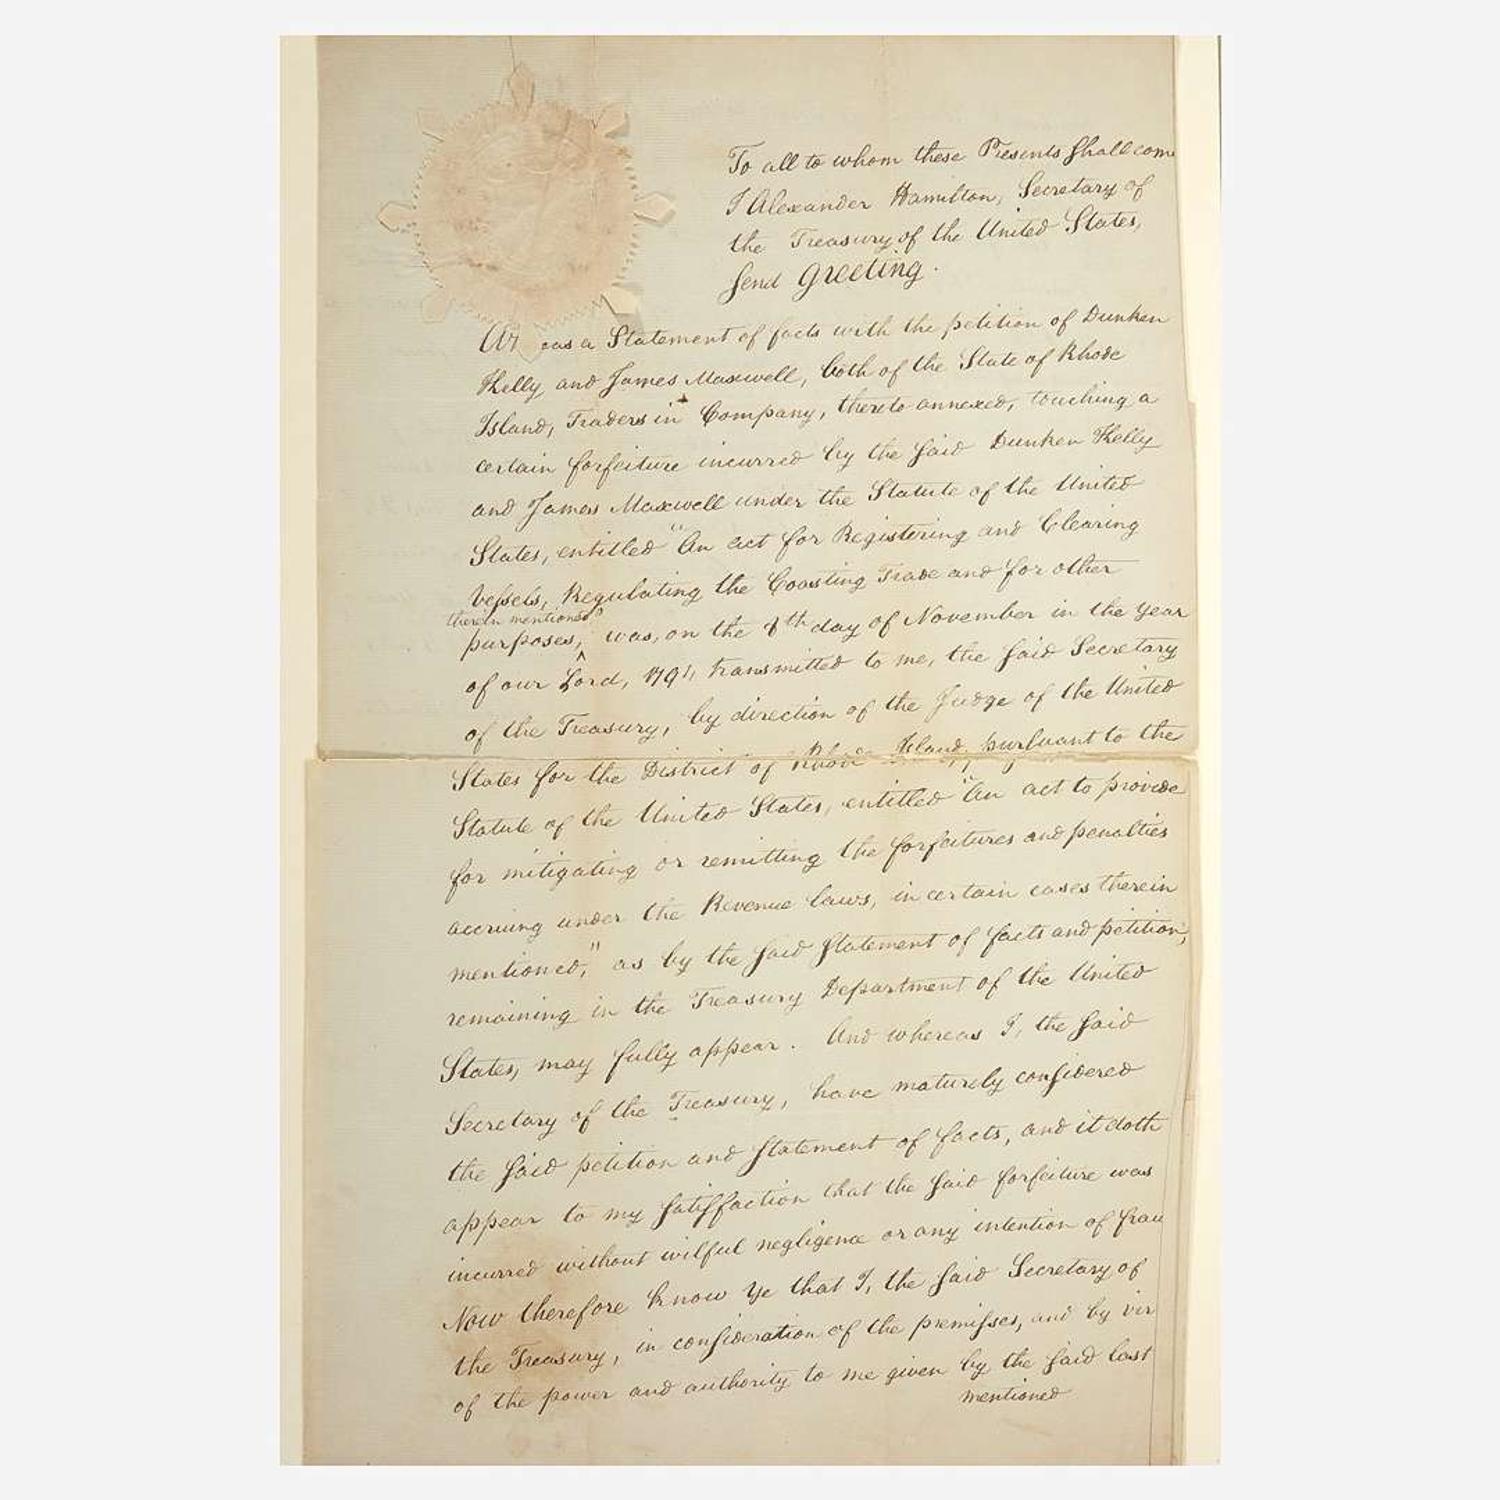 To all to whom these Presents Shall come
I Alexander Hamilton, Secretary of
the Treasury of the United States,
Send Greeting.
Whereas a Statement of facts with the petition of Dunken
Kelly and James Maxwell, both of the State of Rhode
Island, Traders in Company, thereto annexed, touching a
certain forfeiture incurred by the Said Dunken Kelly
and James Maxwell under the Statute of the United
States, entitled "An act for Registering and Clearing
Vessels, Regulating the Coasting Trade and for other
therein mentioned"
purposes, was, on the 8th day of November in the year
of our Lord, 1791, transmitted to me, the Said Secretary
of the Treasury, by direction of the Judge of the United
States for the District of Rhode Island, pursuant to the
Statute of the United States, entitled "An act to provide
for mitigating or remitting the forfeitures and penalties
accruing under the Revenue laws, in certain cases therein
mentioned," as by the Said Statement of facts and petition,
remaining in the Treasury Department of the United
States, may fully appear. And whereas I, the Said
Secretary of the Treasury, have maturely considered
the Said petition and Statement of facts, and it doth
appear to my Satisfaction that the Said forfeiture was
incurred without wilful negligence or any intention of frau
Now therefore know Ye that I, the Said Secretary of
the Treasury, in consideration of the premisses, and by vir
of the power and authority to me given by the Said last
mentioned